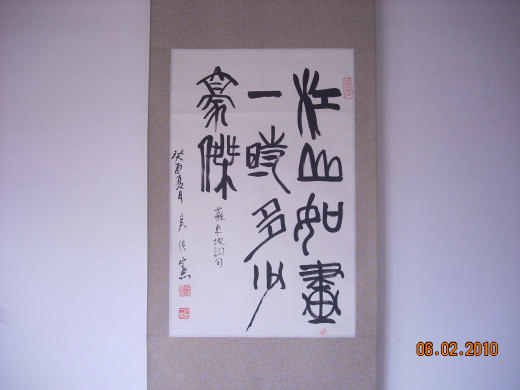 江山如畫
一時多少
豪傑
蘇東坡詞句
癸酉夏月 吳法憲
06.02.2010